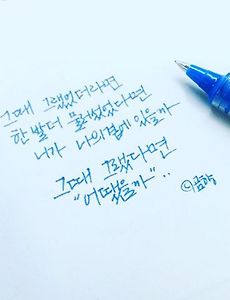 그때 그랬었더라면
한 발 더 물러섰었다면
니가 나의 곁에 있을까
그때 그랬다면
"어땠을까"..
ⓒ곰향